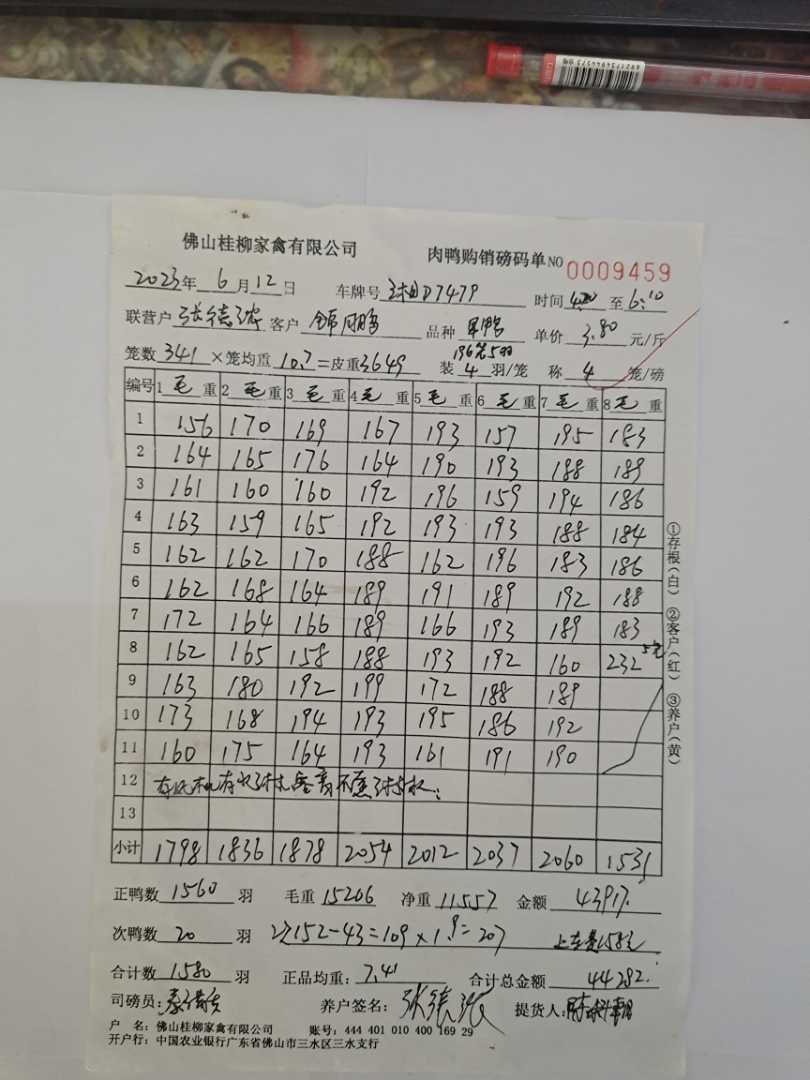 佛山桂柳家禽有限公司 肉鸭购销磅码单NO 0009459
2023年 6 月 12 日 车牌号 D7479 时间 4:20 至 6:10
联营户 张德 客户 品种 单价 3.80 元/斤
笼数 341 ×笼均重 10.7 =皮重 3649 装 4 羽/笼 称 4 笼/磅
编号 1 毛 重 2 毛 重 3 毛 重 4 毛 重 5 毛 重 6 毛 重 7 毛 重 8 毛 重
1 156 170 169 167 193 157 195 183
2 164 165 176 164 190 193 188 189
3 161 160 160 192 196 159 194 186
4 163 159 165 192 193 193 188 184
5 162 162 170 188 162 196 183 186
6 162 168 164 189 191 189 192 188
7 172 164 166 189 166 193 189 183
8 162 165 158 188 193 192 160 232
9 163 180 192 199 172 188 189
10 173 168 194 193 195 186 192
11 160 175 164 193 161 191 190
12
13
小计 1798 1836 1878 2054 2012 2037 2060 1531
正鸭数 1560 羽 毛重 15206 净重 11557 金额 43917.
次鸭数 20 羽 152-43=109×1.9=207 上车费158元
合计数 1580 羽 正品均重: 7.41 合计总金额 44282.
司磅员: 养户签名: 张德 提货人:
户 名: 佛山桂柳家禽有限公司 账号: 444 401 010 400 169 29
开户行: 中国农业银行广东省佛山市三水区三水支行
①存根(白) ②客户(红) ③养户(黄)